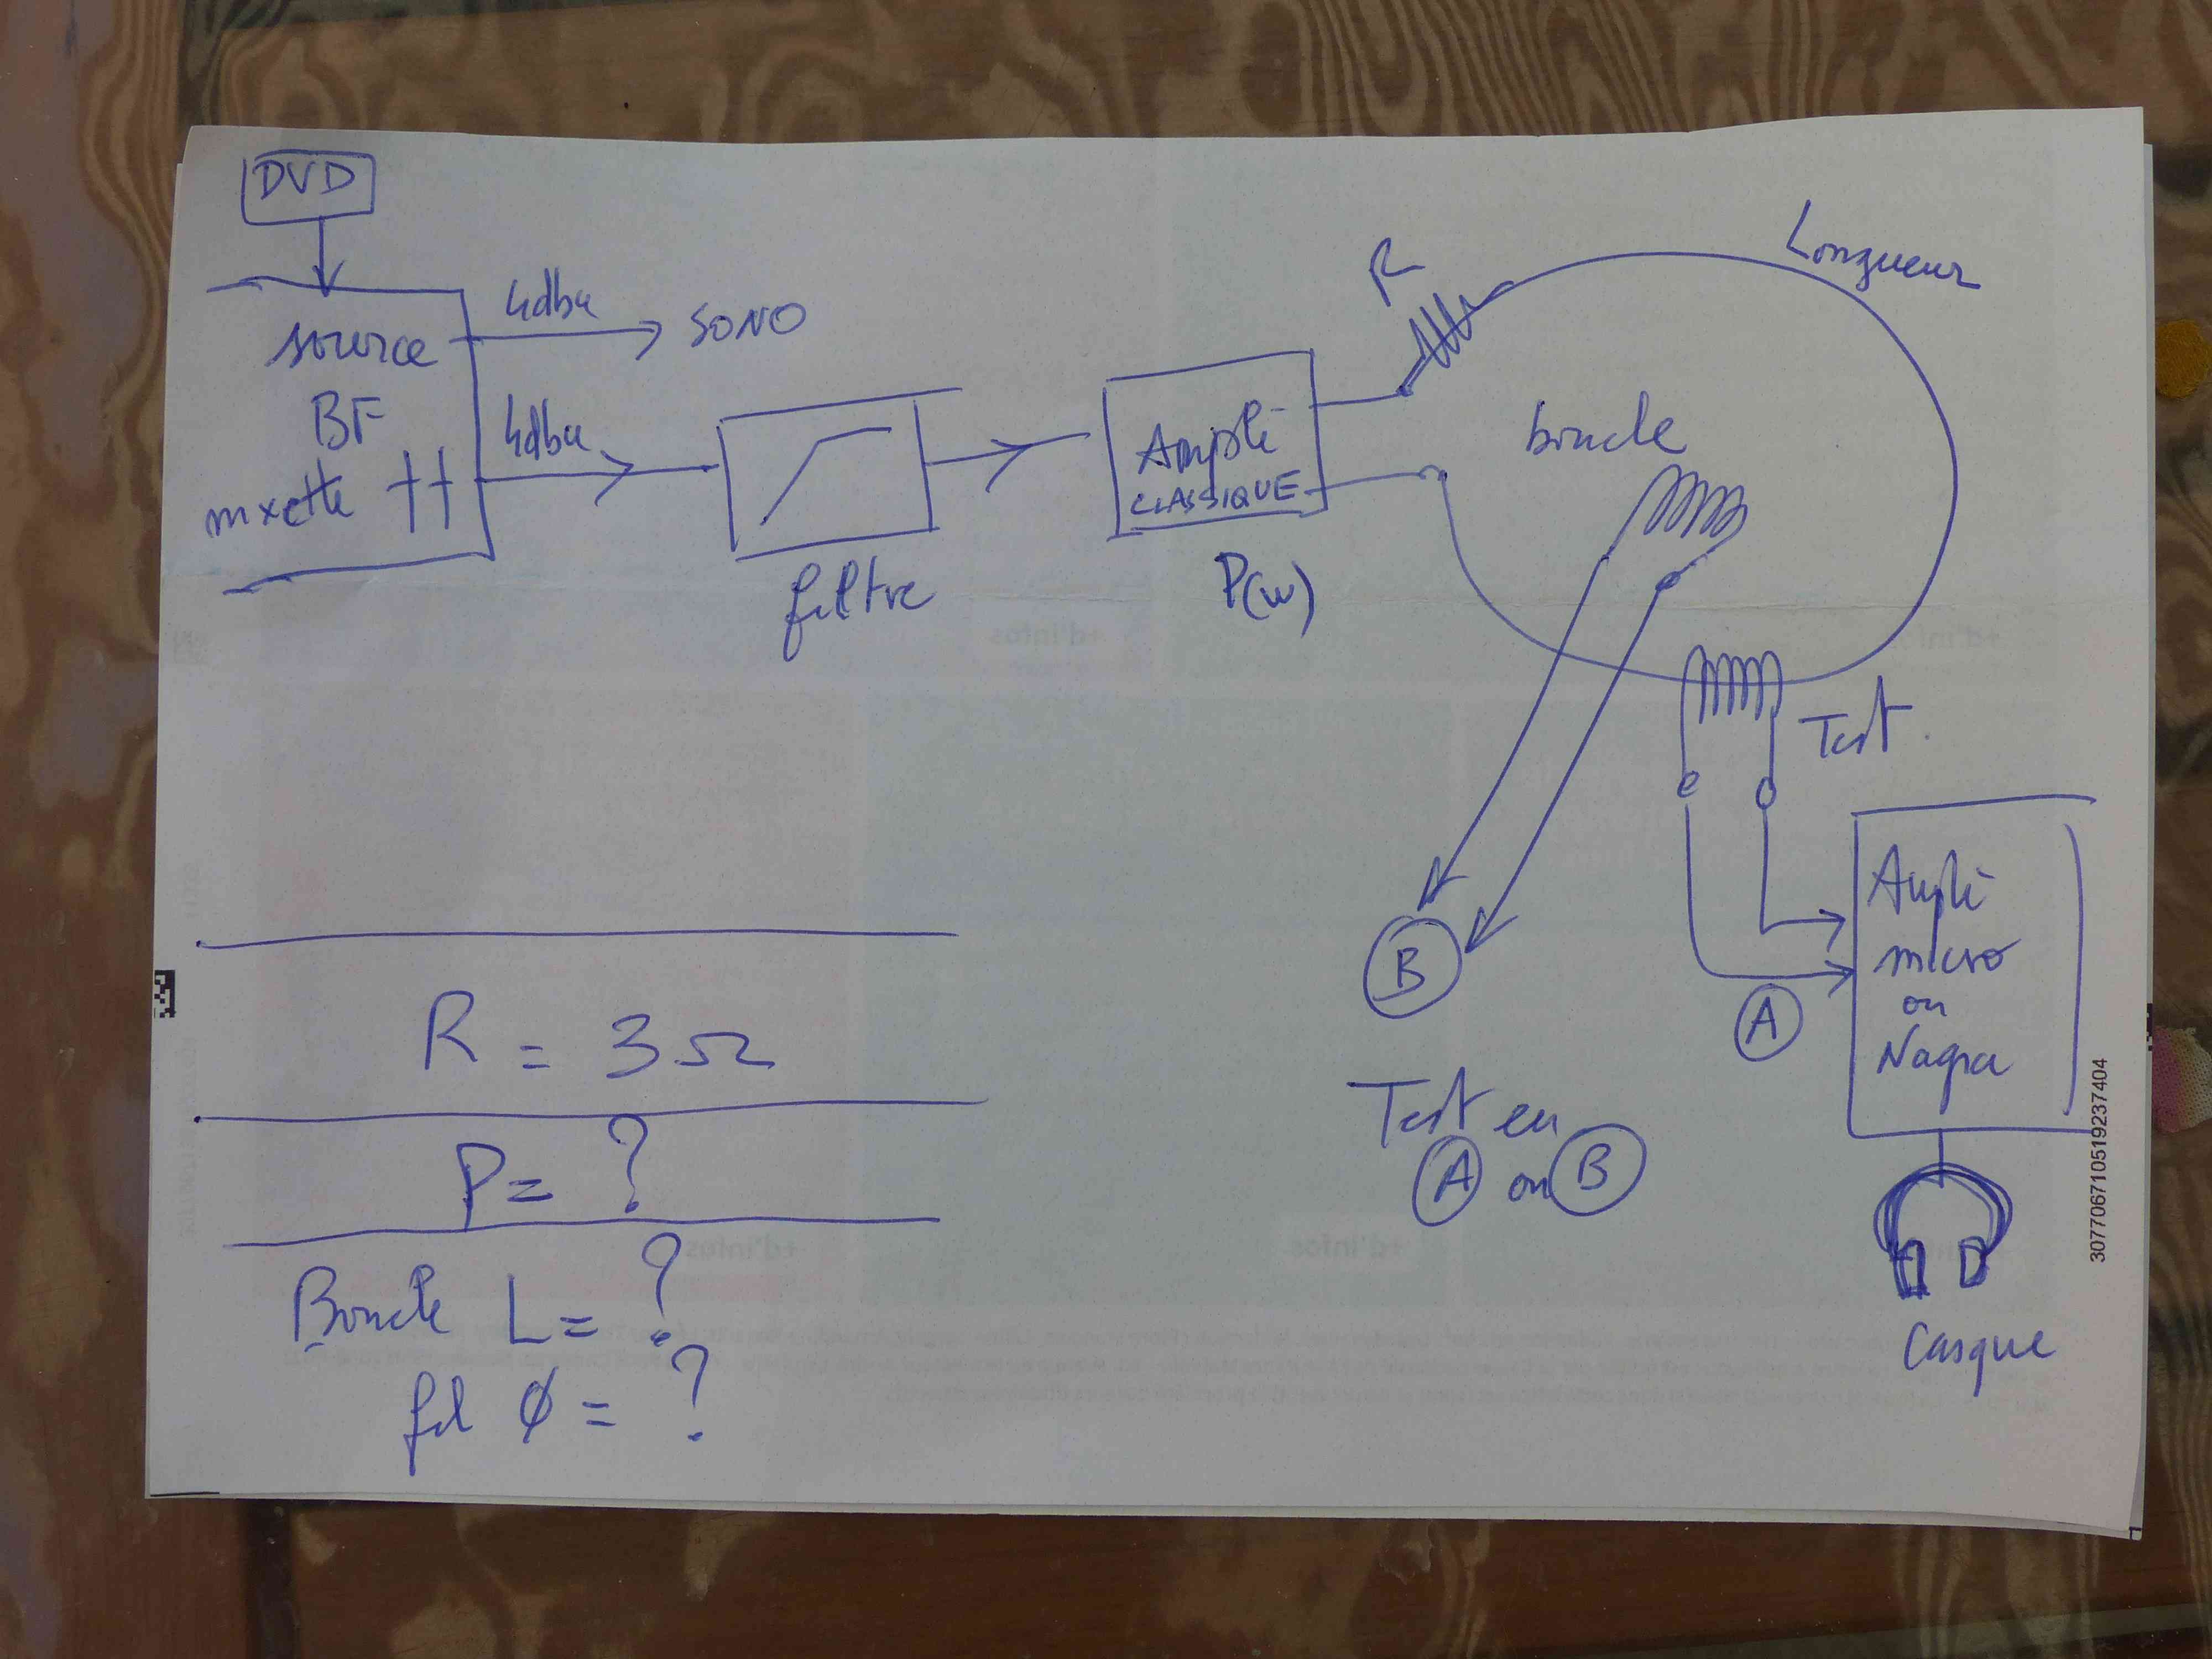 DVD
source
BF
mxette
4dbu
SONO
4dbu
filtre
Ampli
CLASSIQUE
P(w)
R
Longueur
boucle
Test
Ampli
micro
ou
Nagra
A
B
Test en
A ou B
Casque
R = 3Ω
P = ?
Boucle L = ?
fil Ø = ?
3077067105192374​04
+d'infos
+d'infos
+d'infos
+d'infos